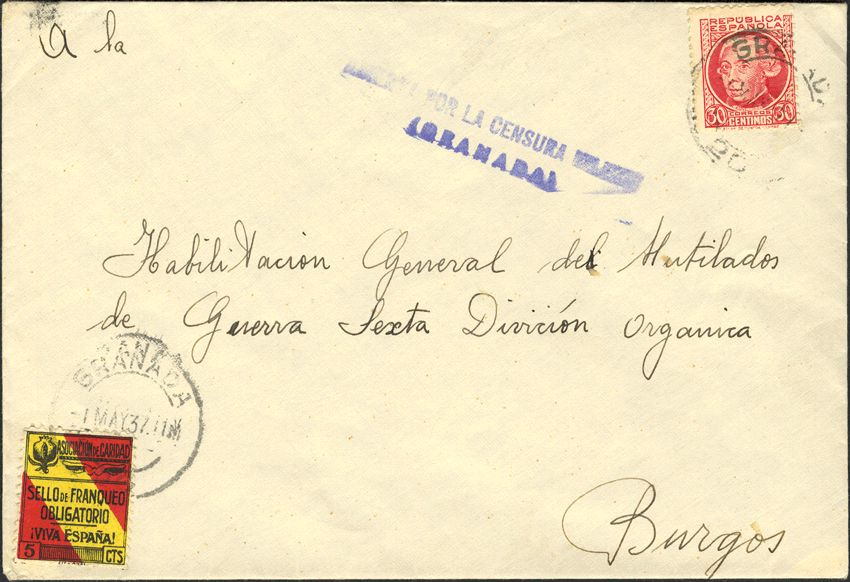 A la
REPÚBLICA
ESPAÑOLA
30 CORREOS 30
CENTIMOS
POR LA CENSURA
(GRANADA)
Habilitación General del Mutilados
de Guerra Sexta Divición Organica
GRANADA
-1 MAY 37.11M
ASOCIACION DE CARIDAD
SELLO DE FRANQUEO
OBLIGATORIO
¡VIVA ESPAÑA!
5 CTS
Burgos